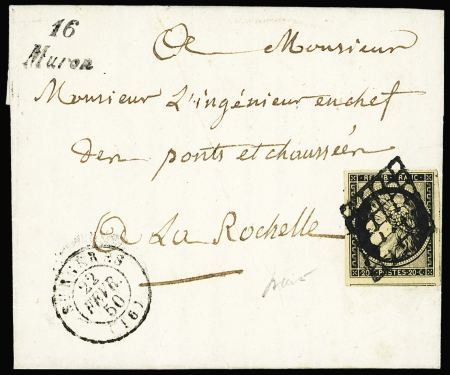 16
Muron
A Monsieur
Monsieur L'ingénieur en chef
des ponts et chaussées
A La Rochelle
SURGÈRES
22
FEVR.
50
(16)
REPUB. FRANC.
20 POSTES 20